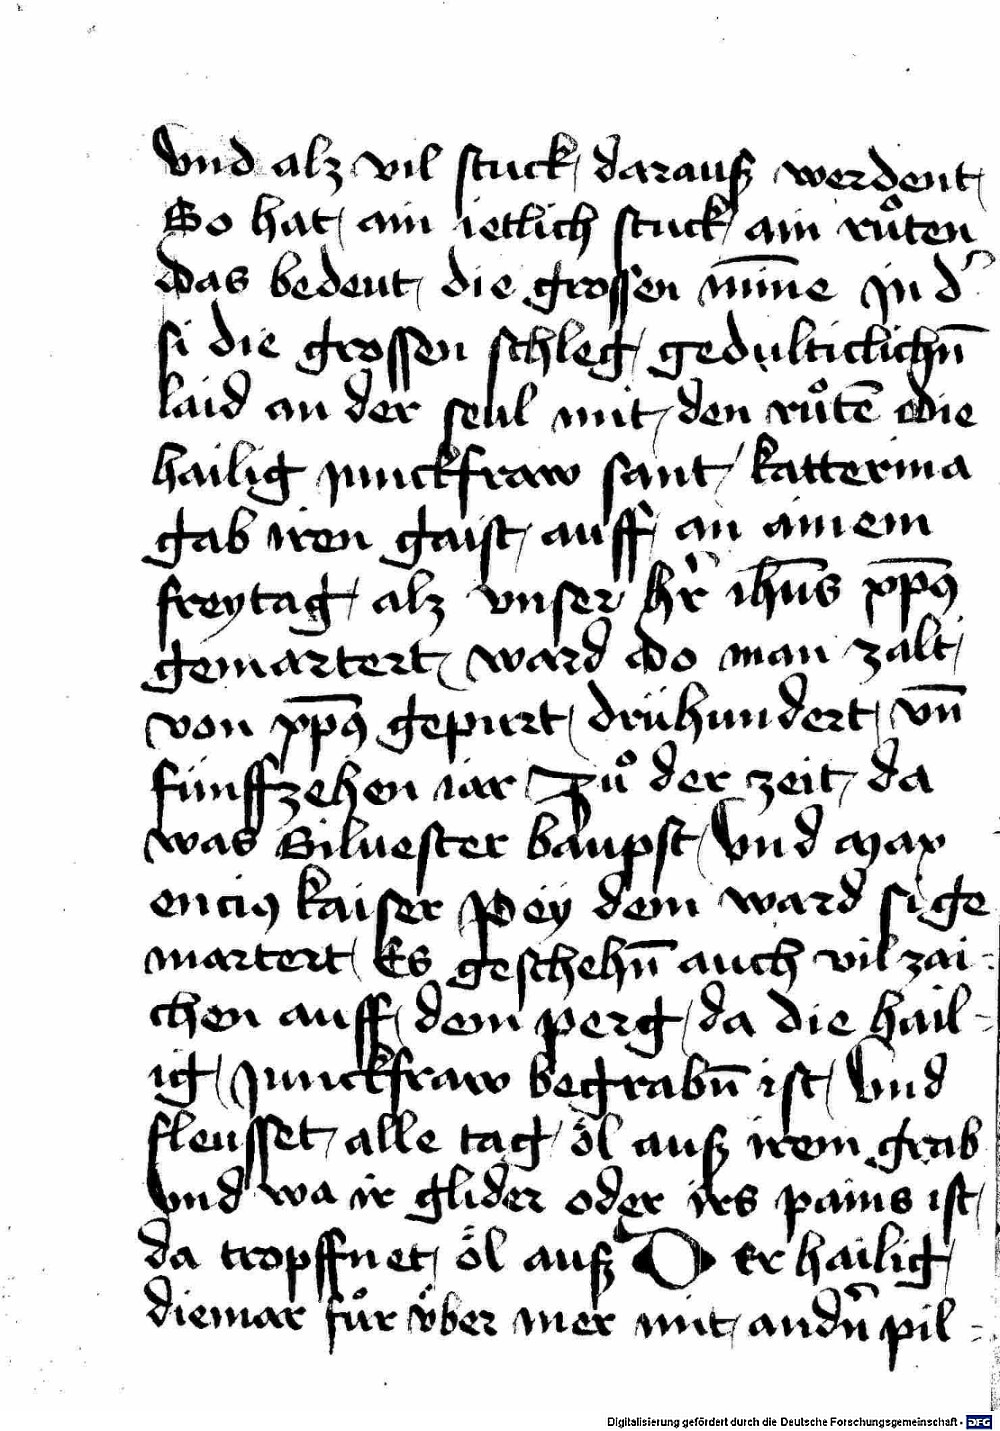 vnd alz vil stuck darauſz werdent
So hat ain ietlich stuck ain růten
Das bedeut die grossen mīne in d᾽
si die grossen schleg gedulticlichn̄
laid an der seul mit den růtē Die
hailig junckfraw sant katterina
gab iren gaist auff an ainem
freytag alz vnser hr᾽ ihūs xp̄ꝰ
gemartert ward Do man zalt
von xp̄ꝰ gepurt drühundert vn̄
fünffzehen iar Zů der zeit da
was Siluester baupst Vnd Max
enciꝰ kaiser Pey dem ward si ge
martert Es geschehn̄ auch vil zai-
chen auff dem perg da die hail-
ig junckfraw begrabn̄ ist Vnd
fleusset alle tag öl ausz irem grab
vnd wa ir glider oder irs pains ist
da tropffnet öl ausz Der hailig
diemar fůr v̈ber mer mit andn̄ pil-
Digitalisierung gefördert durch die Deutsche Forschungsgemeinschaft - DFG